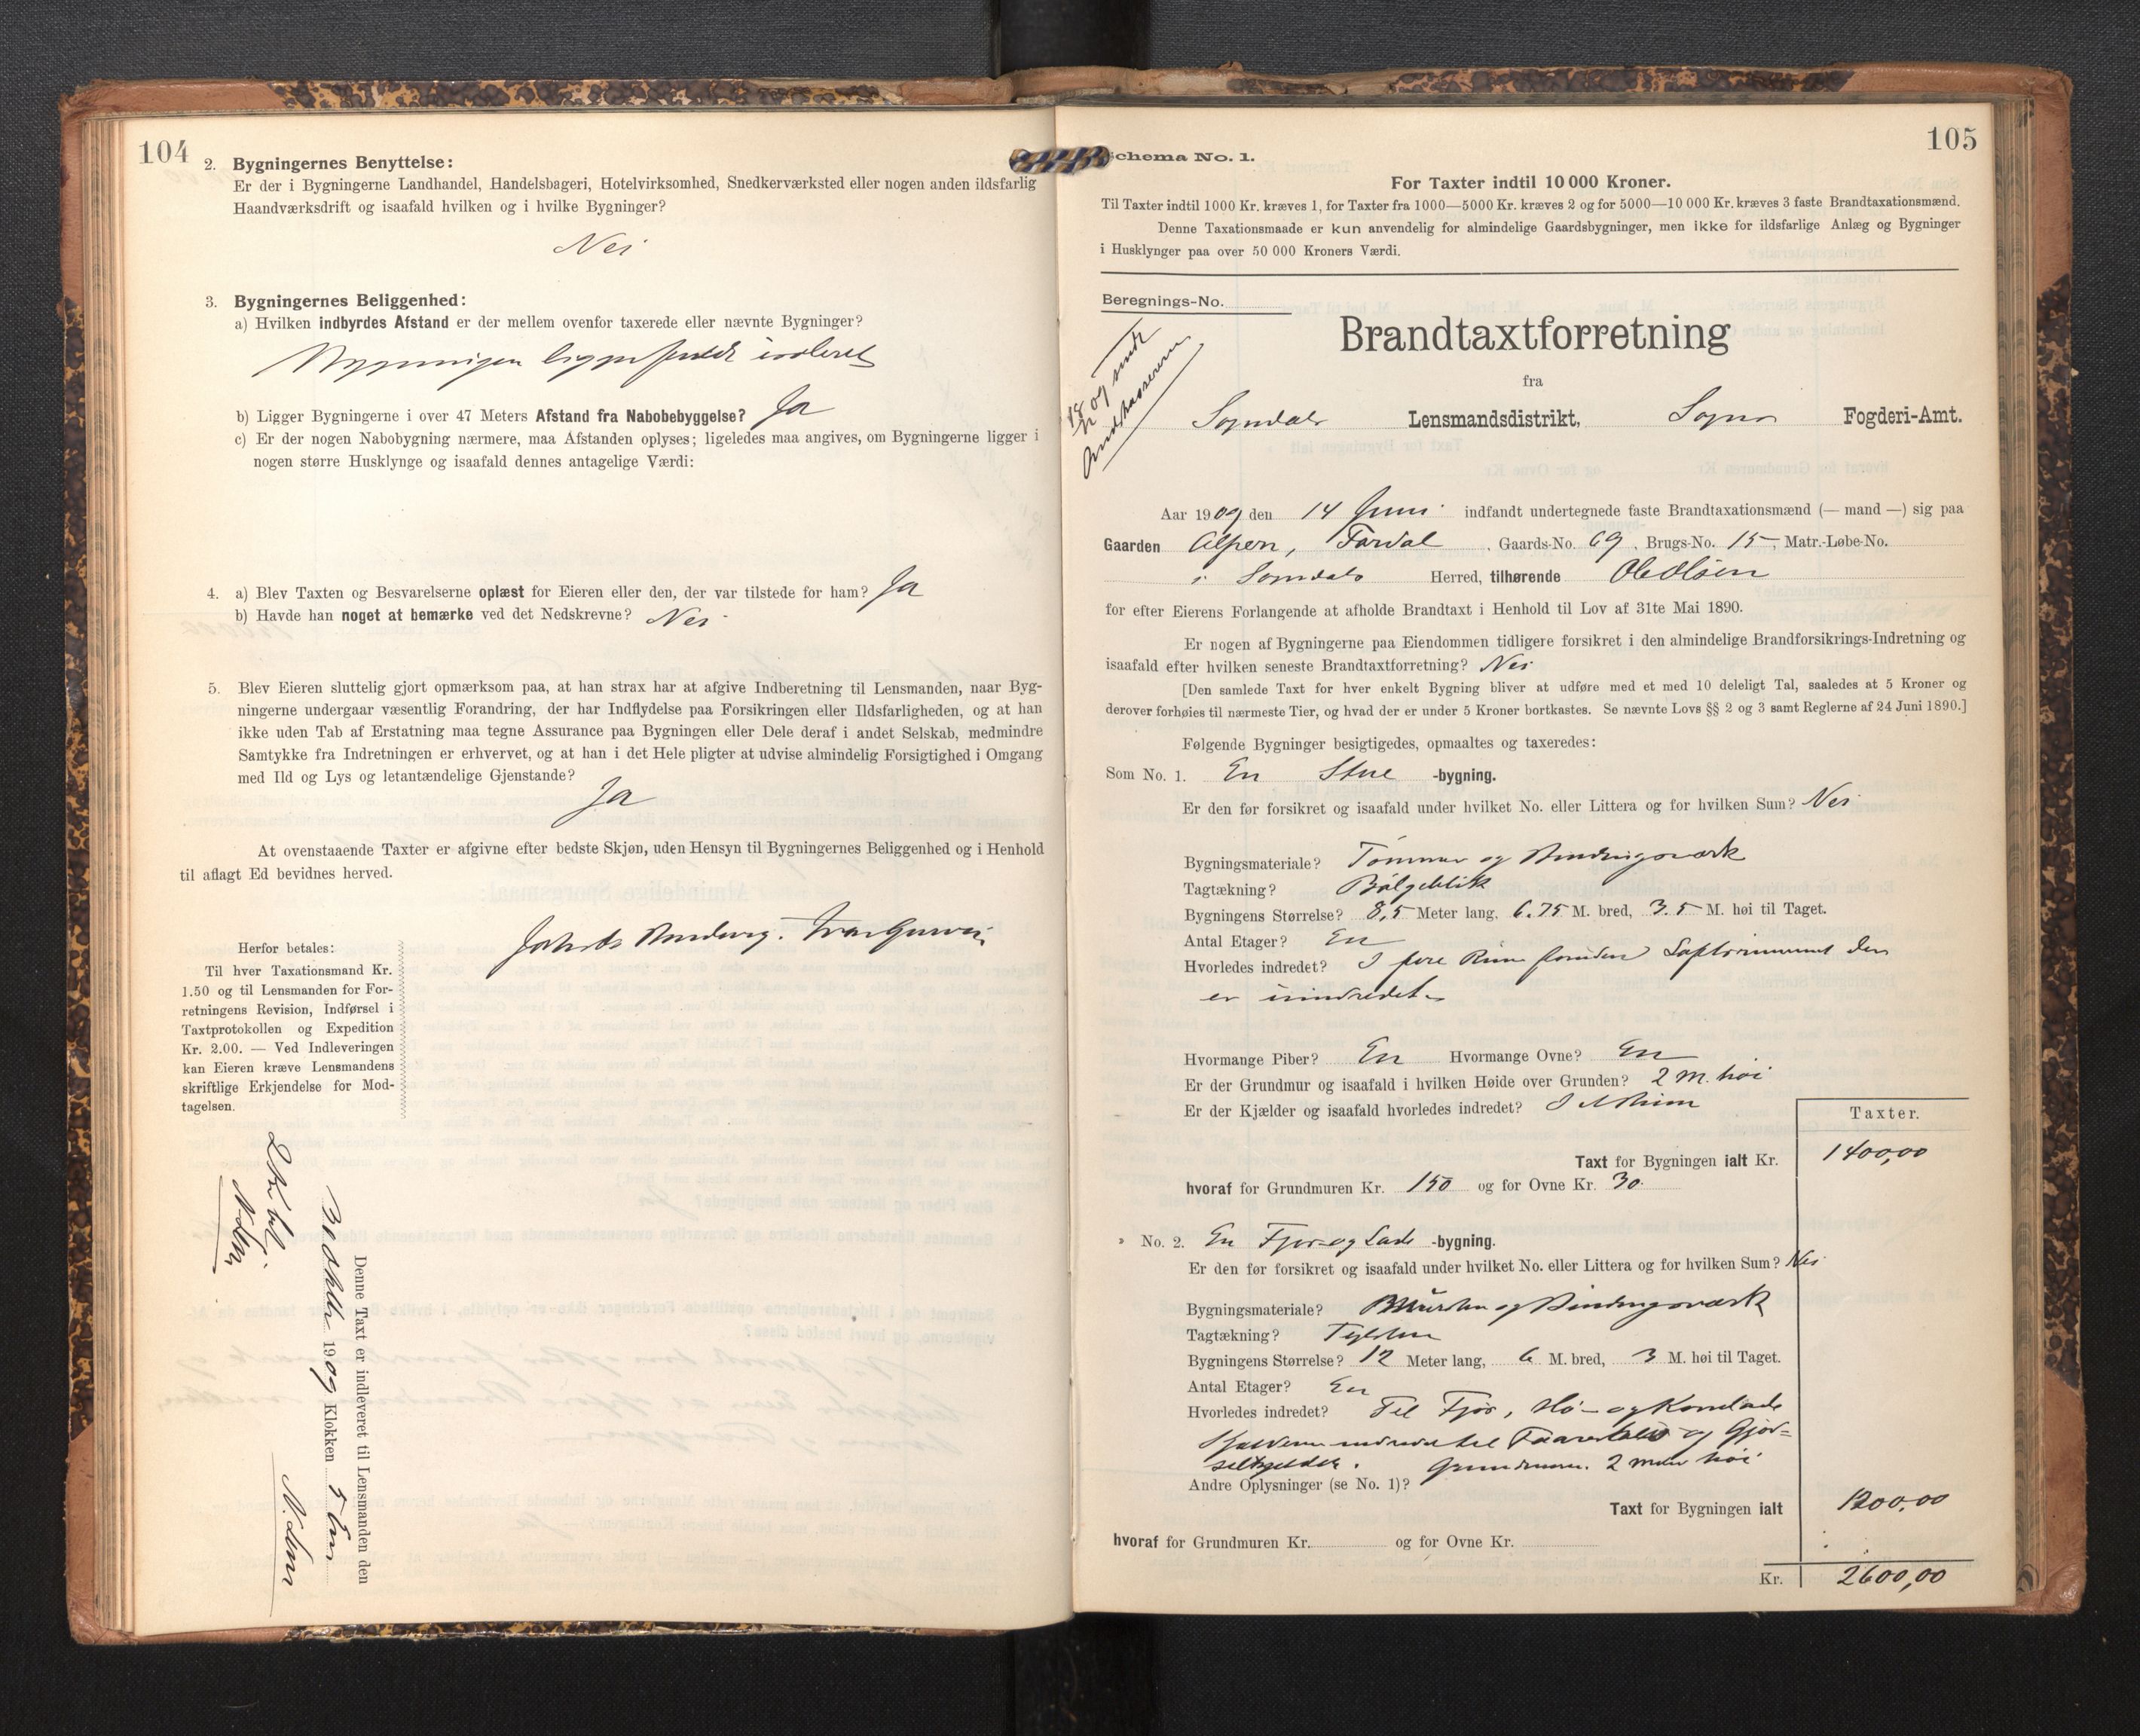 104
2. Bygningernes Benyttelse:
Er der i Bygningerne Landhandel, Handelsbageri, Hotelvirksomhed, Snedkerværksted eller nogen anden ildsfarlig
Haandværksdrift og isaafald hvilken og i hvilke Bygninger?
Nei
3. Bygningernes Beliggenhed:
a) Hvilken indbyrdes Afstand er der mellem ovenfor taxerede eller nævnte Bygninger?
Bygningen ligger isoleret
b) Ligger Bygningerne i over 47 Meters Afstand fra Nabobebyggelse? Ja
c) Er der nogen Nabobygning nærmere, maa Afstanden oplyses; ligeledes maa angives, om Bygningerne ligger i
nogen større Husklynge og isaafald dennes antagelige Værdi:
4. a) Blev Taxten og Besvarelserne oplæst for Eieren eller den, der var tilstede for ham? Ja
b) Havde han noget at bemærke ved det Nedskrevne? Nei
5. Blev Eieren sluttelig gjort opmærksom paa, at han strax har at afgive Indberetning til Lensmanden, naar Byg-
ningerne undergaar væsentlig Forandring, der har Indflydelse paa Forsikringen eller Ildsfarligheden, og at han
ikke uden Tab af Erstatning maa tegne Assurance paa Bygningen eller Dele deraf i andet Selskab, medmindre
Samtykke fra Indretningen er erhvervet, og at han i det Hele pligter at udvise almindelig Forsigtighed i Omgang
med Ild og Lys og letantændelige Gjenstande?
Ja
At ovenstaaende Taxter er afgivne efter bedste Skjøn, uden Hensyn til Bygningernes Beliggenhed og i Henhold
til aflagt Ed bevidnes herved.
Herfor betales:
Til hver Taxationsmand Kr.
1.50 og til Lensmanden for For-
retningens Revision, Indførsel i
Taxtprotokollen og Expedition
Kr. 2.00. — Ved Indleveringen
kan Eieren kræve Lensmandens
skriftlige Erkjendelse for Mod-
tagelsen.
Denne Taxt er indleveret til Lensmanden den
1909 Klokken 5
105
Schema No. 1.
For Taxter indtil 10 000 Kroner.
Til Taxter indtil 1000 Kr. kræves 1, for Taxter fra 1000—5000 Kr. kræves 2 og for 5000—10 000 Kr. kræves 3 faste Brandtaxationsmænd.
Denne Taxationsmaade er kun anvendelig for almindelige Gaardsbygninger, men ikke for ildsfarlige Anlæg og Bygninger
i Husklynger paa over 50 000 Kroners Værdi.
Beregnings-No.
Brandtaxtforretning
fra
Sogndals Lensmandsdistrikt, Sogns Fogderi-Amt.
Aar 1909 den 14 Juni indfandt undertegnede faste Brandtaxationsmænd (— mand —) sig paa
Gaarden Alpen, Fardal, Gaards-No. 69, Brugs-No. 15, Matr.-Løbe-No.
i Sogndals Herred, tilhørende Ole Olsen
for efter Eierens Forlangende at afholde Brandtaxt i Henhold til Lov af 31te Mai 1890.
Er nogen af Bygningerne paa Eiendommen tidligere forsikret i den almindelige Brandforsikrings-Indretning og
isaafald efter hvilken seneste Brandtaxtforretning? Nei
[Den samlede Taxt for hver enkelt Bygning bliver at udføre med et med 10 deleligt Tal, saaledes at 5 Kroner og
derover forhøies til nærmeste Tier, og hvad der er under 5 Kroner bortkastes. Se nævnte Lovs §§ 2 og 3 samt Reglerne af 24 Juni 1890.]
Følgende Bygninger besigtigedes, opmaaltes og taxeredes:
Som No. 1. En Stue -bygning.
Er den før forsikret og isaafald under hvilket No. eller Littera og for hvilken Sum? Nei
Bygningsmateriale? Tømmer og Bindingsværk
Tagtækning? Bølgeblik
Bygningens Størrelse? 8,5 Meter lang, 6.75 M. bred, 3.5 M. høi til Taget.
Antal Etager? En
Hvorledes indredet? I fire Rum foruden Loftsrummet der
er uindredet
Hvormange Piber? En Hvormange Ovne? En
Er der Grundmur og isaafald i hvilken Høide over Grunden? 2 M. høi
Er der Kjælder og isaafald hvorledes indredet? I et Rum
Taxter.
Taxt for Bygningen ialt Kr. 1400,00
hvoraf for Grundmuren Kr. 150 og for Ovne Kr. 30.
" No. 2. En Fjøs og Lade -bygning.
Er den før forsikret og isaafald under hvilket No. eller Littera og for hvilken Sum? Nei
Bygningsmateriale? Mursten og Bindingsværk
Tagtækning? Teglsten
Bygningens Størrelse? 12 Meter lang, 6 M. bred, 3 M. høi til Taget.
Antal Etager? En
Hvorledes indredet? Til Fjøs, Hø- og Kornlade
Kjælderen indredet til Faarestald og Gjød-
selkjelder. Grundmuren 2 Meter høi
Andre Oplysninger (se No. 1)?
Taxt for Bygningen ialt 1200,00
hvoraf for Grundmuren Kr. og for Ovne Kr.
Kr. 2600,00